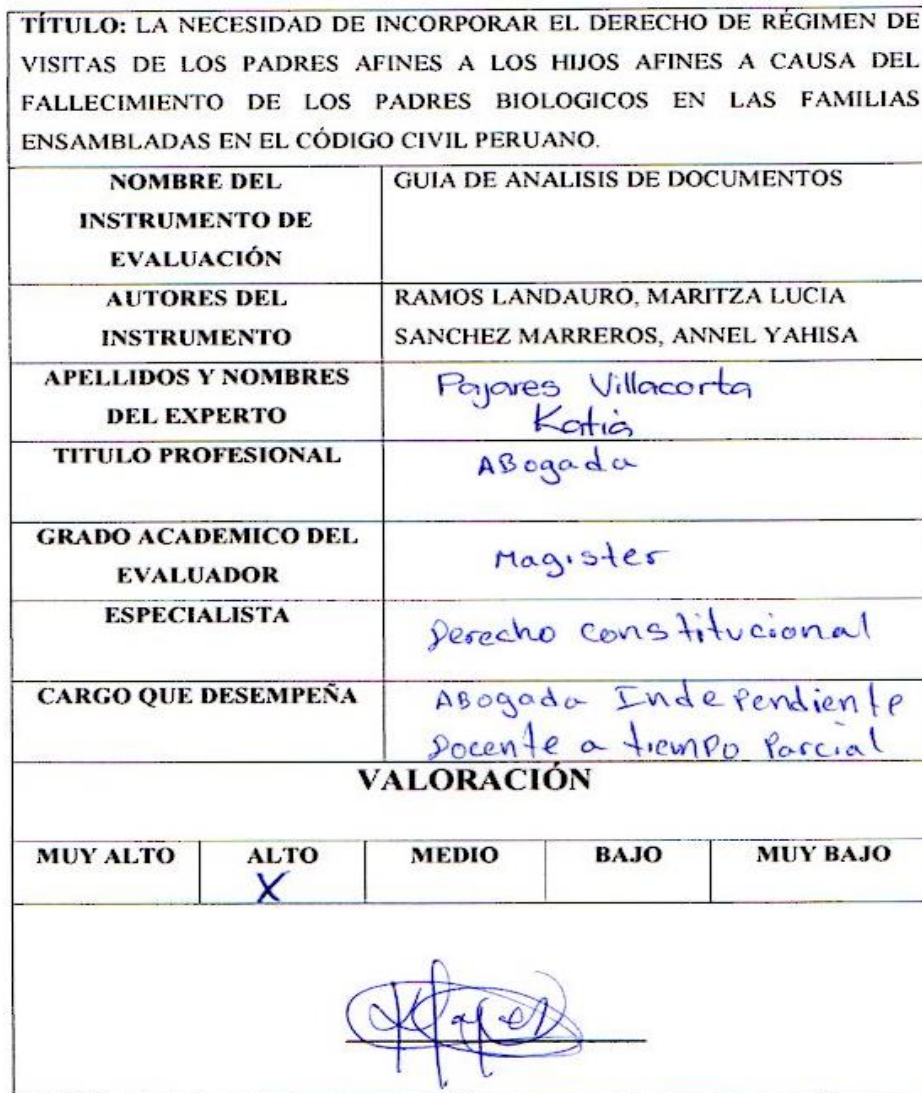 TÍTULO: LA NECESIDAD DE INCORPORAR EL DERECHO DE RÉGIMEN DE
VISITAS DE LOS PADRES AFINES A LOS HIJOS AFINES A CAUSA DEL
FALLECIMIENTO DE LOS PADRES BIOLOGICOS EN LAS FAMILIAS
ENSAMBLADAS EN EL CÓDIGO CIVIL PERUANO.
NOMBRE DEL
INSTRUMENTO DE
EVALUACIÓN
GUIA DE ANALISIS DE DOCUMENTOS
AUTORES DEL
INSTRUMENTO
RAMOS LANDAURO, MARITZA LUCIA
SANCHEZ MARREROS, ANNEL YAHISA
APELLIDOS Y NOMBRES
DEL EXPERTO
Pajares Villacorta
Katia
TITULO PROFESIONAL
ABogada
GRADO ACADEMICO DEL
EVALUADOR
Magister
ESPECIALISTA
Derecho constitucional
CARGO QUE DESEMPEÑA
ABogada Independiente
Docente a tiempo Parcial
VALORACIÓN
MUY ALTO ALTO MEDIO BAJO MUY BAJO
X